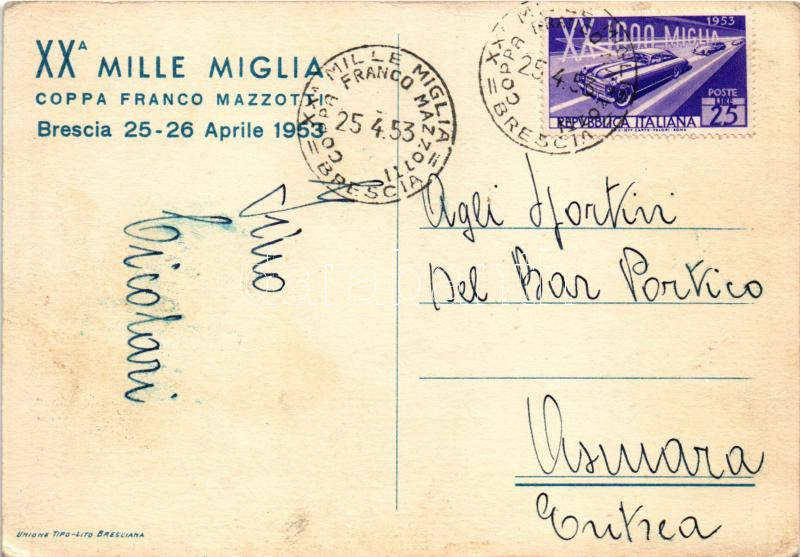 XXᴬ MILLE MIGLIA
COPPA FRANCO MAZZOTTI
Brescia 25-26 Aprile 1953
XXᴬ MILLE MIGLIA
COPPA FRANCO MAZZOTTI
25.4.53
BRESCIA
XXᴬ MILLE MIGLIA
COPPA FRANCO MAZZOTTI
25.4.53
BRESCIA
1953
XX 1000 MIGLIA
POSTE
LIRE
25
REPVBBLICA ITALIANA
Agli Sportivi
Del Bar Portico
Asmara
Eritrea
UNIONE TIPO-LITO BRESCIANA
darabanth